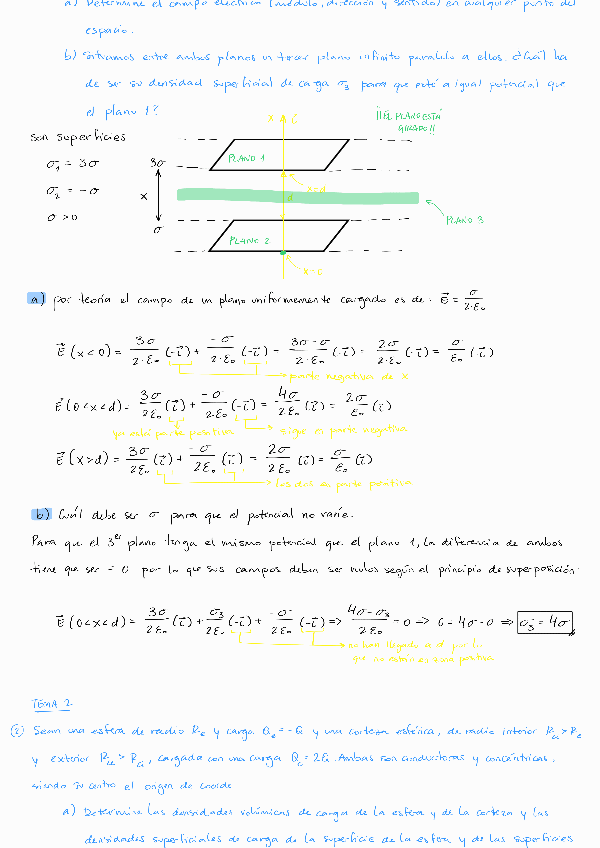 a) Determine el campo eléctrico (módulo, dirección y sentido) en cualquier punto del
espacio.
b) Situamos entre ambos planos un tercer plano infinito paralelo a ellos. ¿Cuál ha
de ser su densidad superficial de carga σ₃ para que esté a igual potencial que
el plano 1?
son superficies
σ₁ = 3σ
σ₂ = -σ
σ > 0
3σ
x
σ
x
PLANO 1
x=d
d
PLANO 2
¡¡EL PLANO ESTÁ
GIRADO!!
PLANO 3
a) por teoría el campo de un plano uniformemente cargado es de: E⃗ = σ/2·ε₀
E⃗(x<0) = 3σ/2·ε₀ (-i⃗) + -σ/2·ε₀ (-i⃗) = 3σ-σ/2·ε₀ (-i⃗) = 2σ/2·ε₀ (-i⃗) = σ/ε₀ (i⃗)
→ parte negativa de x
E⃗(0<x<d) = 3σ/2ε₀ (i⃗) + -σ/2·ε₀ (-i⃗) = 4σ/2ε₀ (i⃗) = 2σ/ε₀ (i⃗)
ya está parte positiva
sigue en parte negativa
E⃗(x>d) = 3σ/2ε₀ (i⃗) + -σ/2ε₀ (i⃗) = 2σ/2ε₀ (i⃗) = σ/ε₀ (i⃗)
→ las dos en parte positiva
b) Cuál debe ser σ para que el potencial no varíe.
Para que el 3er plano tenga el mismo potencial que el plano 1, la diferencia de ambos
tiene que ser = 0 por lo que sus campos deben ser nulos según el principio de superposición.
E⃗(0<x<d) = 3σ/2ε₀ (i⃗) + σ₃/2ε₀ (-i⃗) + -σ/2ε₀ (-i⃗) => 4σ-σ₃/2ε₀ = 0 → 0 = 4σ-σ => σ₃ = 4σ
→ no han llegado a d por lo
que no están en zona positiva
TEMA 2.
② Sean una esfera de radio Rₑ y carga Qₑ = -Q y una corteza esférica, de radio interior > Rₑ
y exterior >, cargada con una carga Q꜀ = 2Q. Ambas son conductoras y concéntricas,
siendo su centro el origen de coorde
a) Determine las densidades volúmicas de carga de la esfera y de la corteza y las
densidades superficiales de carga de la superficie de la esfera y de las superficies